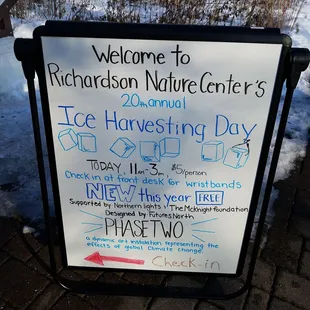 Welcome to
Richardson Nature Center's
20th annual
Ice Harvesting Day
TODAY 11AM-3PM $5/person
Check in at front desk for wristbands
NEW this year FREE
Supported by Northern Lights & The McKnight foundation
Designed by Futures North
PHASE TWO
a dynamic art installation representing the
effects of global climate change.
Check-in